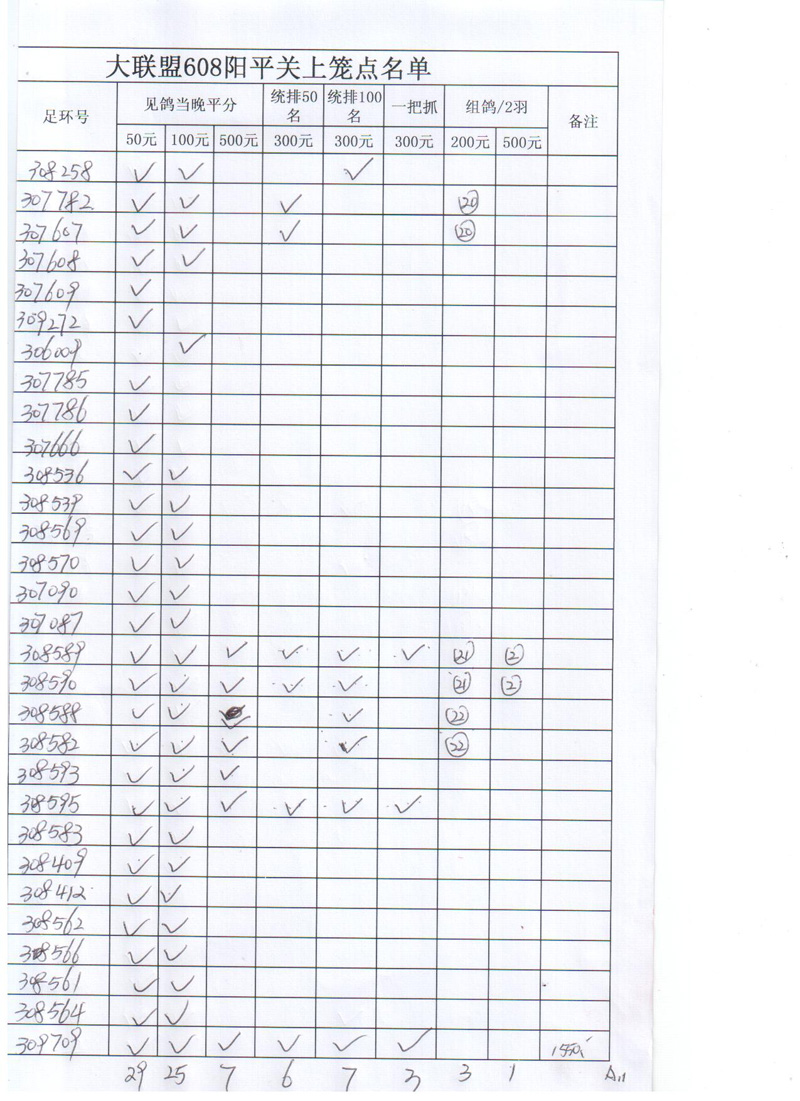 大联盟608阳平关上笼点名单
足环号 见鸽当晚平分 统排50名 统排100名 一把抓 组鸽/2羽 备注
50元 100元 500元 300元 300元 300元 200元 500元
308258 ✓ ✓ ✓
307782 ✓ ✓ ✓ ⑳
307607 ✓ ✓ ✓ ⑳
307608 ✓ ✓
307609 ✓
309272 ✓
306009 ✓
307785 ✓
307786 ✓
307666 ✓
308536 ✓ ✓
308539 ✓ ✓
308569 ✓ ✓
308570 ✓ ✓
307090 ✓ ✓
307087 ✓ ✓
308589 ✓ ✓ ✓ ✓ ✓ ✓ ㉑ ②
308590 ✓ ✓ ✓ ✓ ✓ ㉑ ②
308588 ✓ ✓ ✓ ✓ ㉒
308582 ✓ ✓ ✓ ✓ ㉒
308593 ✓ ✓ ✓
308595 ✓ ✓ ✓ ✓ ✓ ✓
308583 ✓ ✓
308409 ✓ ✓
308412 ✓ ✓
308562 ✓ ✓
308566 ✓ ✓
308561 ✓ ✓
308564 ✓ ✓
309709 ✓ ✓ ✓ ✓ ✓ ✓
29 25 7 6 7 3 3 1